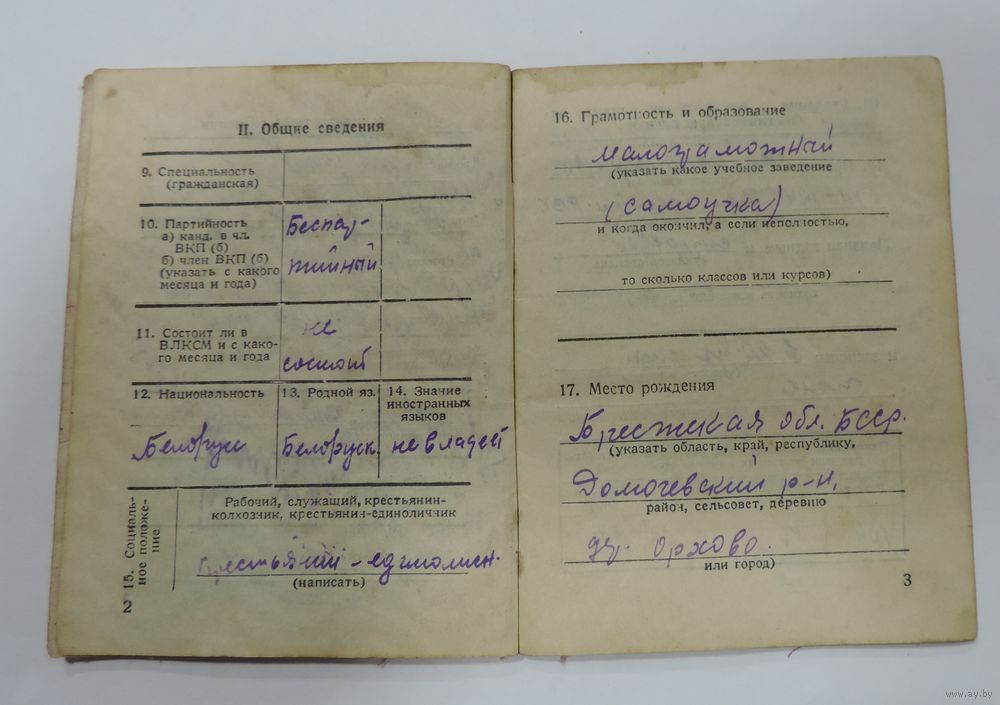 II. Общие сведения
9. Специальность
(гражданская)
10. Партийность
а) канд. в чл.
ВКП (б)
б) член ВКП (б)
(указать с какого
месяца и года)
Беспар-
тийный
11. Состоит ли в
ВЛКСМ и с како-
го месяца и года
не
состоит
12. Национальность
Белорус
13. Родной яз.
Белоруск.
14. Знание
иностранных
языков
не владеет
15. Социаль-
ное положе-
ние
Рабочий, служащий, крестьянин-
колхозник, крестьянин-единоличник
(написать)
2
16. Грамотность и образование
малограмотный
(указать какое учебное заведение
(самоучка)
и когда окончил, а если неполностью,
то сколько классов или курсов)
17. Место рождения
Брестская обл. БССР.
(указать область, край, республику,
Домачевский р-н,
район, сельсовет, деревню
Орхово.
или город)
3
www.ay.by